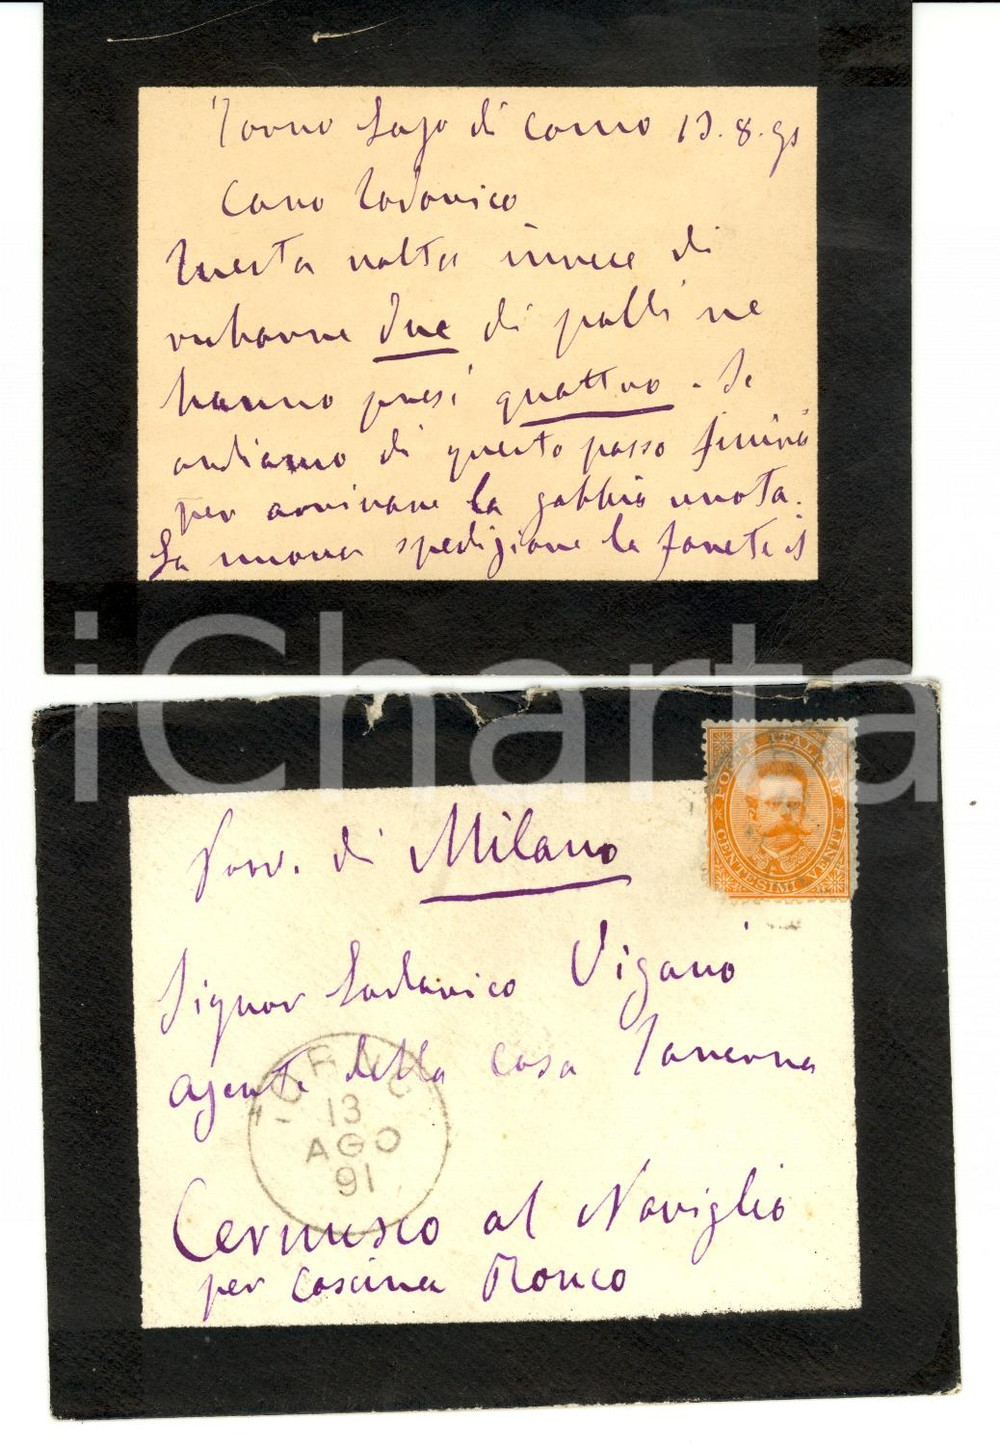 Torno Lago di Como 13.8.91
Caro Lodovico
Questa volta invece di
rubarne due di polli ne
hanno presi quattro. Se
andiamo di questo passo finirà
per arrivare la gabbia vuota.
La nuova spedizione la farete il
iCharta
Prov. di Milano
POSTE ITALIANE
CENTESIMI VENTI
Signor Lodovico Viganò
agente della casa Taverna
TORNO
13
AGO
91
Cernusco al Naviglio
per Cascina Ronco